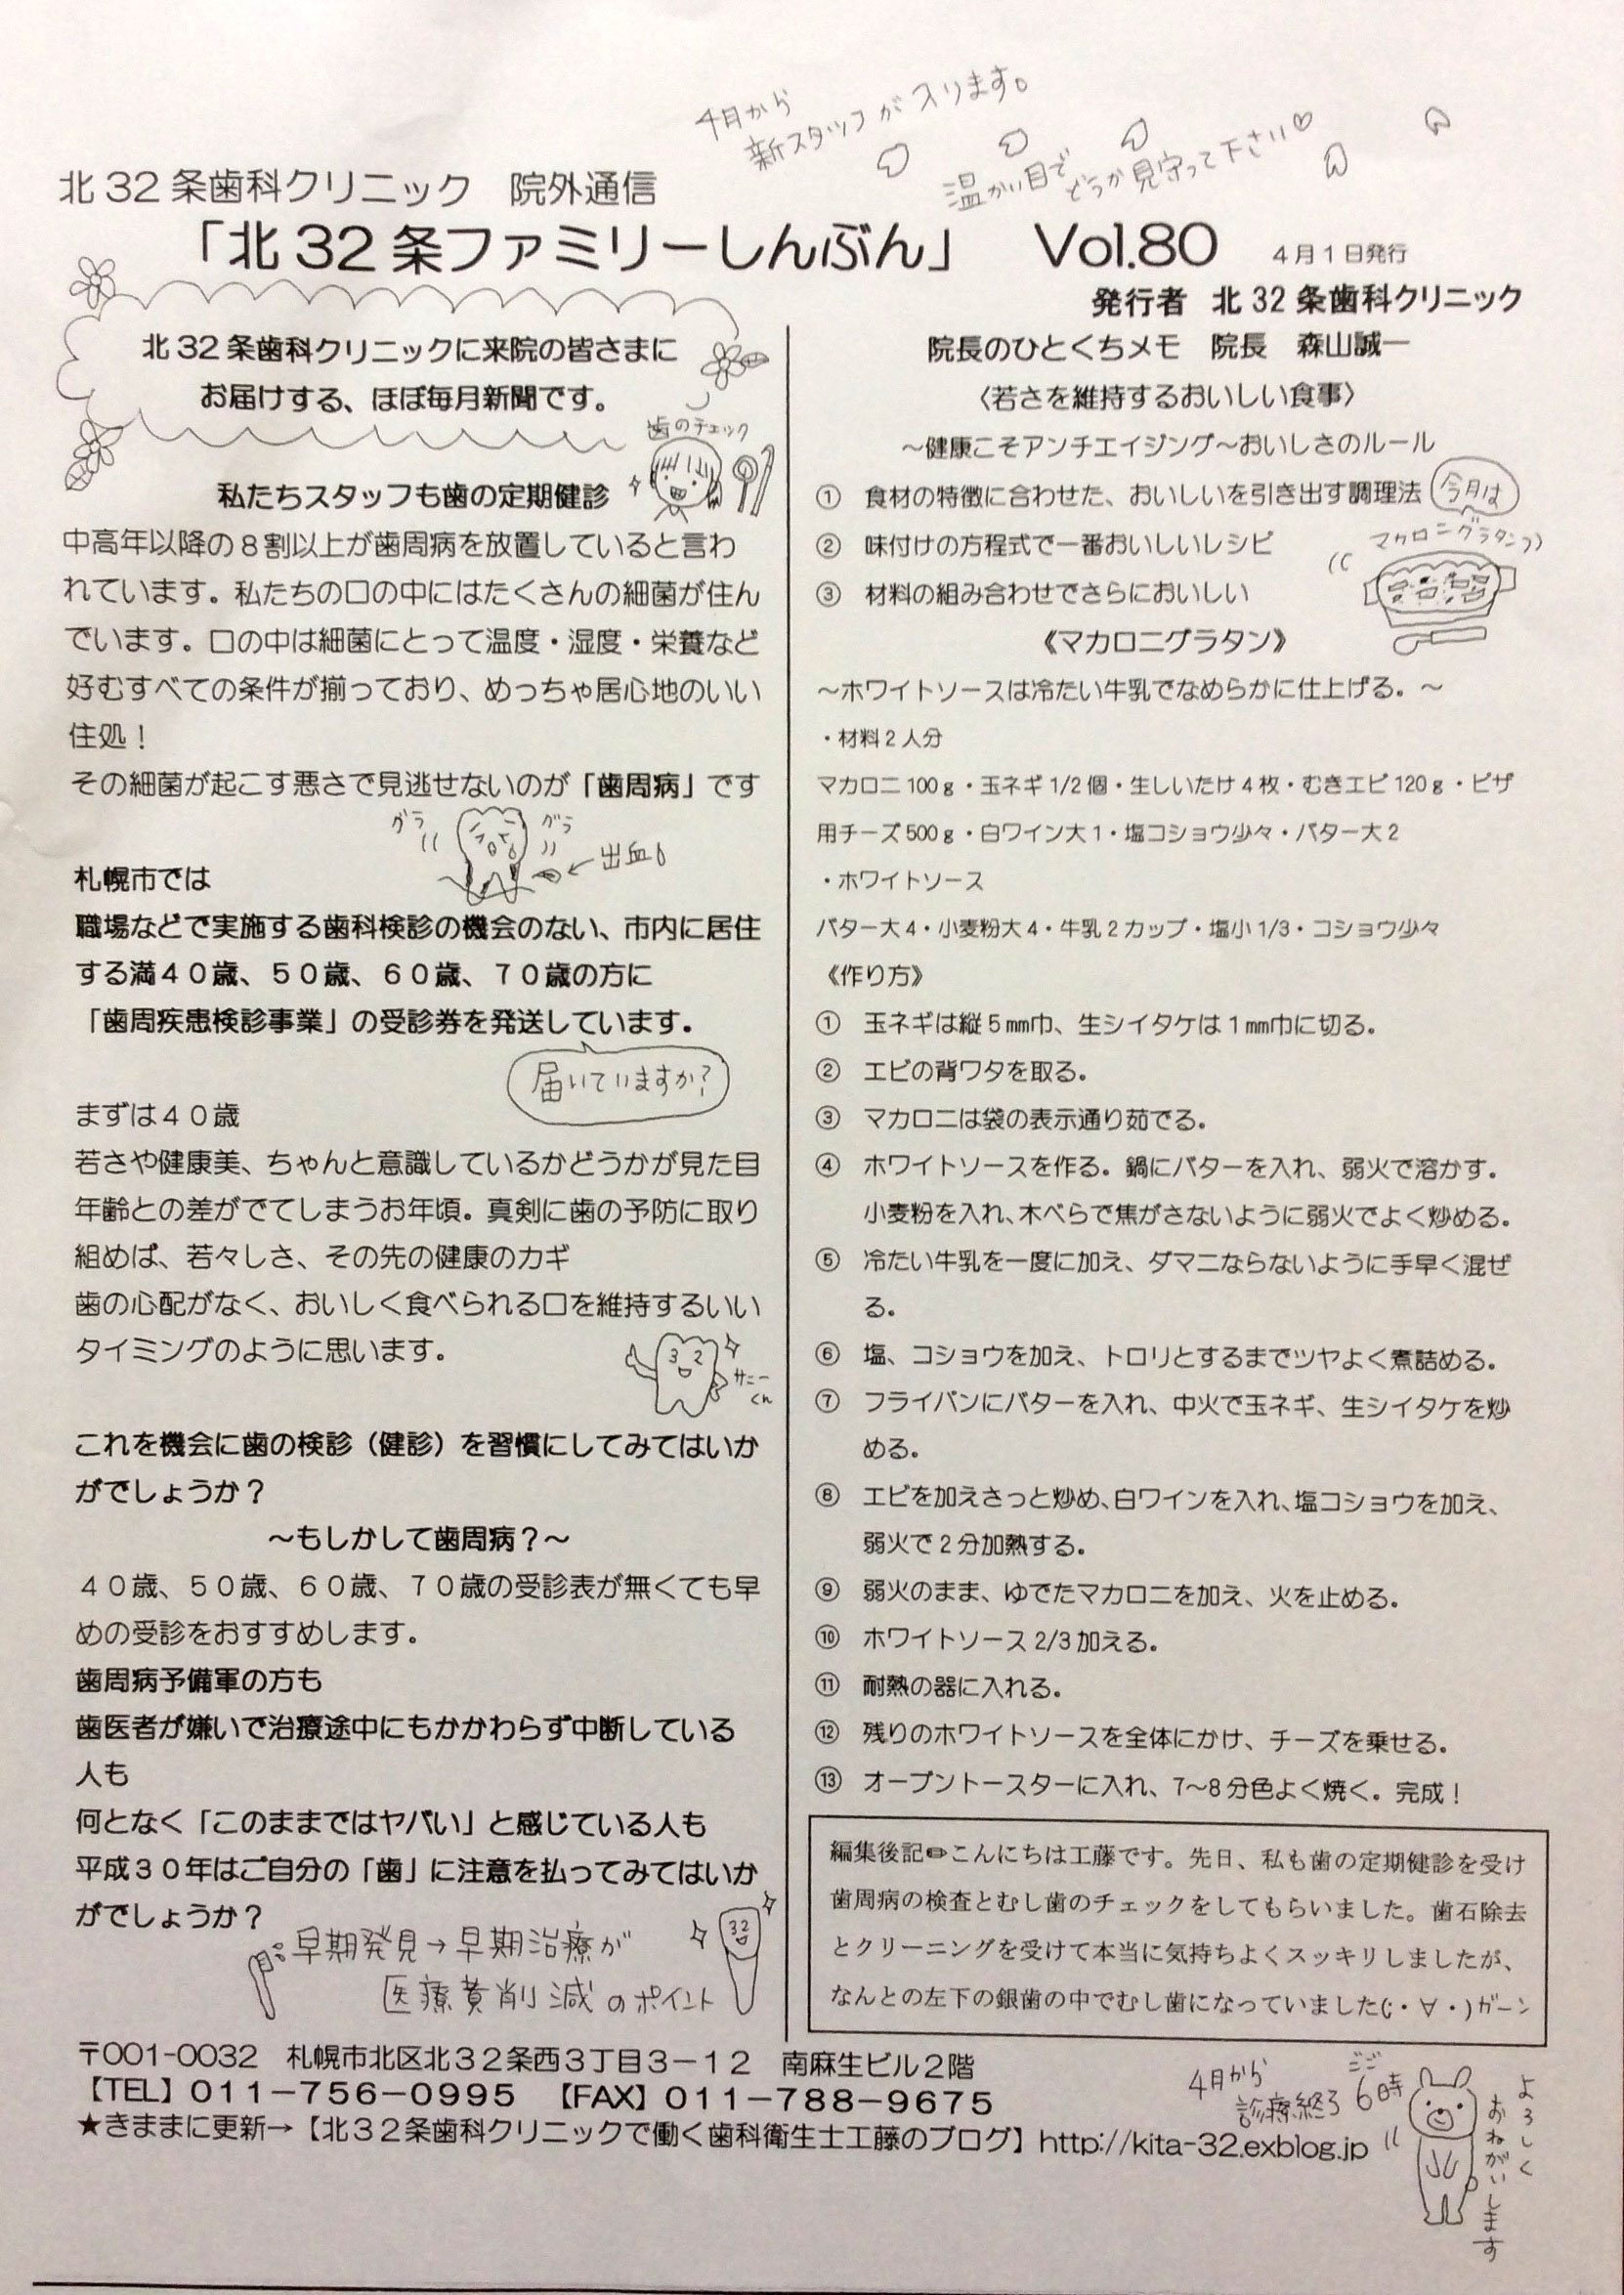 4月から
新スタッフが入ります。
温かい目で
どうか見守って下さい♡
北32条歯科クリニック　院外通信
「北32条ファミリーしんぶん」　Vol.80　4月1日発行
発行者　北32条歯科クリニック
北32条歯科クリニックに来院の皆さまに
お届けする、ほぼ毎月新聞です。
歯のチェック
私たちスタッフも歯の定期健診
中高年以降の8割以上が歯周病を放置していると言わ
れています。私たちの口の中にはたくさんの細菌が住ん
でいます。口の中は細菌にとって温度・湿度・栄養など
好むすべての条件が揃っており、めっちゃ居心地のいい
住処！
その細菌が起こす悪さで見逃せないのが「歯周病」です
グラ
グラ
←出血
札幌市では
職場などで実施する歯科検診の機会のない、市内に居住
する満４０歳、５０歳、６０歳、７０歳の方に
「歯周疾患検診事業」の受診券を発送しています。
届いていますか?
まずは４０歳
若さや健康美、ちゃんと意識しているかどうかが見た目
年齢との差がでてしまうお年頃。真剣に歯の予防に取り
組めば、若々しさ、その先の健康のカギ
歯の心配がなく、おいしく食べられる口を維持するいい
タイミングのように思います。
32
サニー
くん
これを機会に歯の検診（健診）を習慣にしてみてはいか
がでしょうか？
～もしかして歯周病？～
４０歳、５０歳、６０歳、７０歳の受診表が無くても早
めの受診をおすすめします。
歯周病予備軍の方も
歯医者が嫌いで治療途中にもかかわらず中断している
人も
何となく「このままではヤバい」と感じている人も
平成３０年はご自分の「歯」に注意を払ってみてはいか
がでしょうか？
早期発見→早期治療が
医療費削減のポイント
32
院長のひとくちメモ　院長　森山誠一
〈若さを維持するおいしい食事〉
～健康こそアンチエイジング～おいしさのルール
①　食材の特徴に合わせた、おいしいを引き出す調理法
今月は
マカロニグラタン
②　味付けの方程式で一番おいしいレシピ
③　材料の組み合わせでさらにおいしい
《マカロニグラタン》
～ホワイトソースは冷たい牛乳でなめらかに仕上げる。～
・材料2人分
マカロニ100g・玉ネギ1/2個・生しいたけ4枚・むきエビ120g・ピザ
用チーズ500g・白ワイン大1・塩コショウ少々・バター大2
・ホワイトソース
バター大4・小麦粉大4・牛乳2カップ・塩小1/3・コショウ少々
《作り方》
①　玉ネギは縦5㎜巾、生シイタケは1㎜巾に切る。
②　エビの背ワタを取る。
③　マカロニは袋の表示通り茹でる。
④　ホワイトソースを作る。鍋にバターを入れ、弱火で溶かす。
小麦粉を入れ、木べらで焦がさないように弱火でよく炒める。
⑤　冷たい牛乳を一度に加え、ダマニならないように手早く混ぜ
る。
⑥　塩、コショウを加え、トロリとするまでツヤよく煮詰める。
⑦　フライパンにバターを入れ、中火で玉ネギ、生シイタケを炒
める。
⑧　エビを加えさっと炒め、白ワインを入れ、塩コショウを加え、
弱火で2分加熱する。
⑨　弱火のまま、ゆでたマカロニを加え、火を止める。
⑩　ホワイトソース2/3加える。
⑪　耐熱の器に入れる。
⑫　残りのホワイトソースを全体にかけ、チーズを乗せる。
⑬　オーブントースターに入れ、7～8分色よく焼く。完成！
編集後記✏こんにちは工藤です。先日、私も歯の定期健診を受け
歯周病の検査とむし歯のチェックをしてもらいました。歯石除去
とクリーニングを受けて本当に気持ちよくスッキリしましたが、
なんとの左下の銀歯の中でむし歯になっていました(;・∀・)ガーン
〒001-0032　札幌市北区北３２条西３丁目３－１２　南麻生ビル２階
【TEL】０１１－７５６－０９９５　【FAX】０１１－７８８－９６７５
★きままに更新→【北３２条歯科クリニックで働く歯科衛生士工藤のブログ】http://kita-32.exblog.jp
4月から
診療終了 ごご6時
よろしく
おねがいします